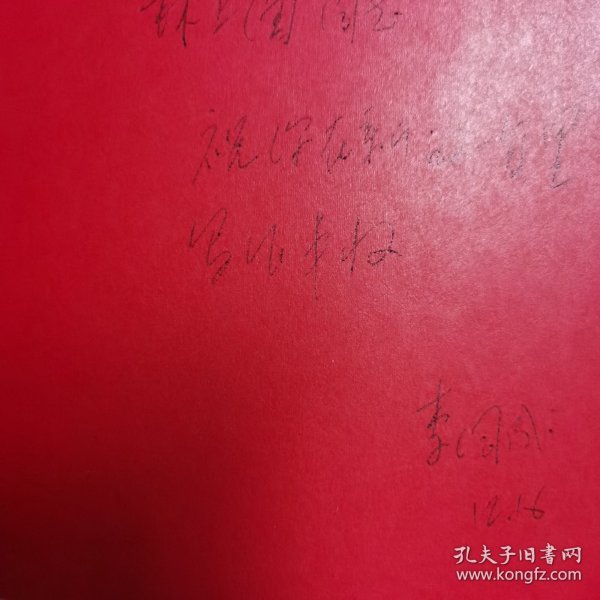 同志
祝你在新的一年里
写作丰收
李国
12.16
孔夫子旧书网
www.kongfz.com